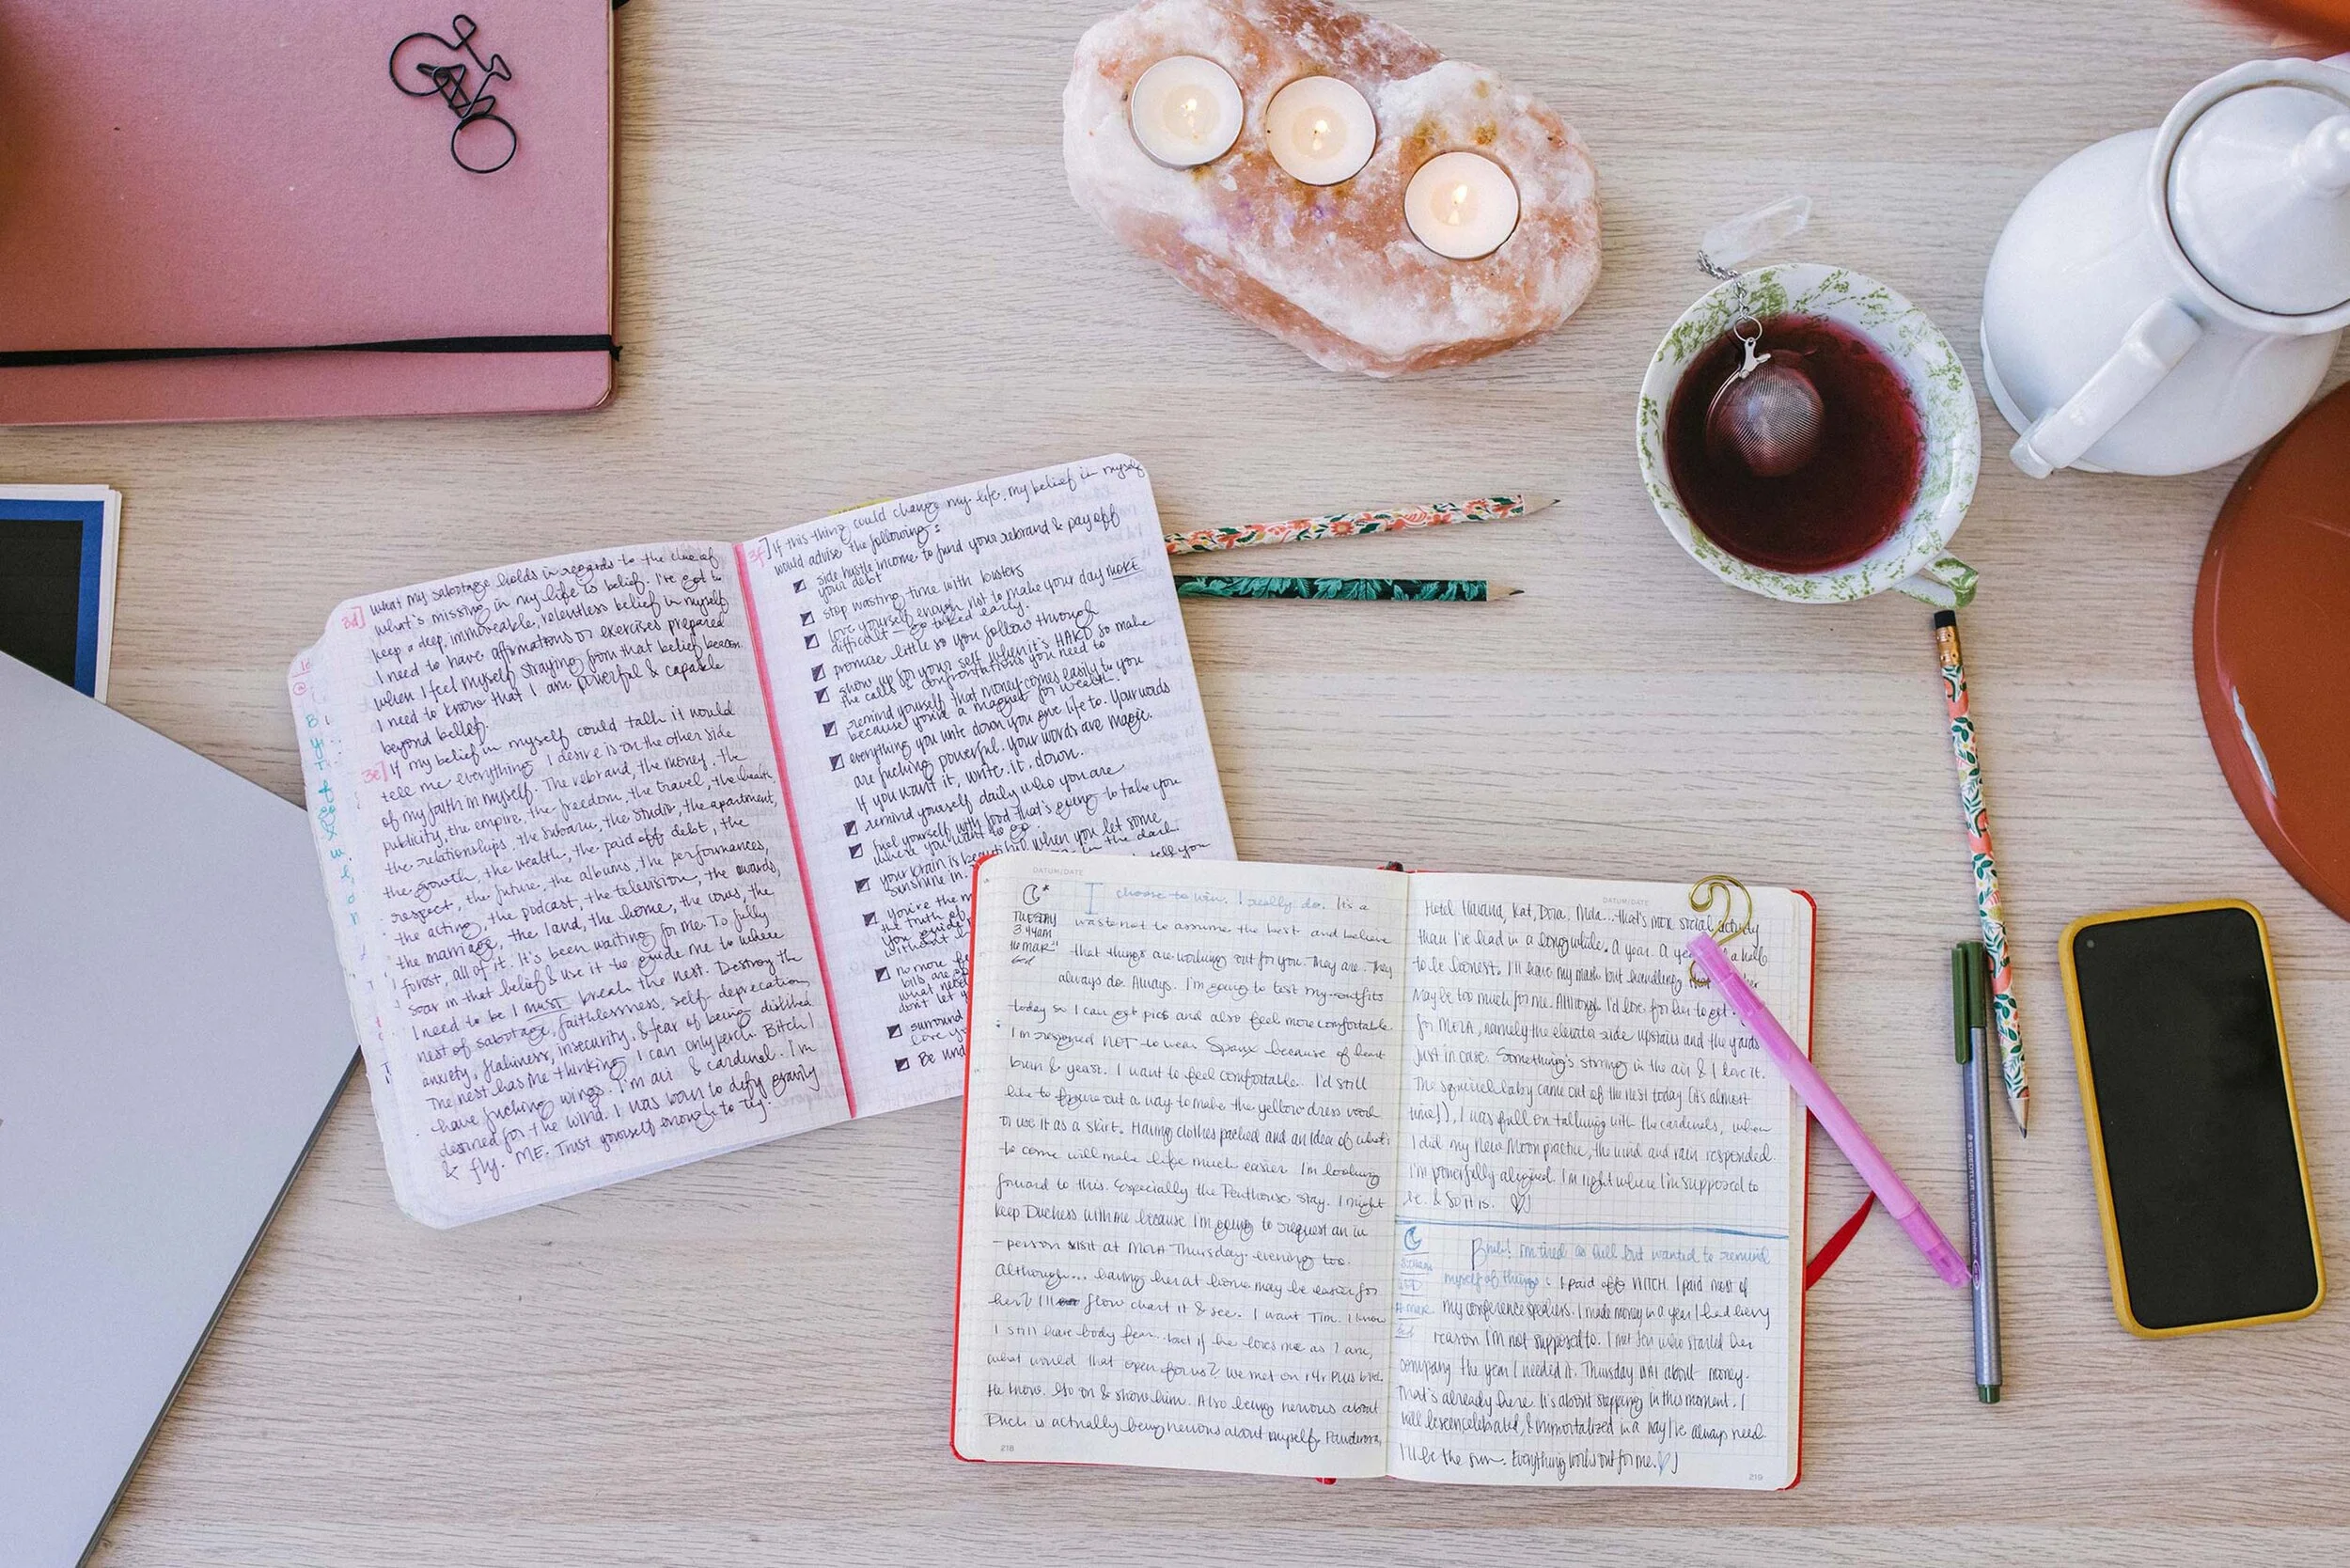 3d] what my sabotage holds in regards to the clue of
what's missing in my life is belief. I've got to
keep a deep, immoveable, relentless belief in myself
I need to have affirmations or exercises prepared
when I feel myself straying from that belief beacon.
I need to know that I am powerful & capable
beyond belief.
3e] If my belief in myself could talk it would
tell me everything I desire is on the other side
of my faith in myself. The rebrand, the money, the
publicity, the empire, the freedom, the travel, the health,
the relationships, the subaru, the studio, the apartment,
the growth, the wealth, the paid off debt, the
respect, the future, the albums, the performances,
the acting, the podcast, the television, the awards,
the marriage, the land, the home, the cows, the
forest, all of it. It's been waiting for me. To fully
soar in that belief & use it to guide me to where
I need to be I must break the nest. Destroy the
nest of sabotage, faithlessness, self-deprecation,
anxiety, flakiness, insecurity, & fear of being disliked
The nest has me thinking I can only perch. Bitch I
have fucking wings. I'm air & cardinal. I'm
destined for the wind. I was born to defy gravity
& fly. ME. Trust yourself enough to try.
3f] If this thing could change my life, my belief in myself
would advise the following:
side hustle income to fund your rebrand & pay off
your debt
stop wasting time with busters
love yourself enough not to make your day MORE
difficult - go to bed early.
promise little so you follow through
show up for your self when it's HARD so make
the calls & confrontations you need to
remind yourself that money comes easily to you
because you're a magnet for wealth.
everything you write down you give life to. Your words
are fucking powerful. Your words are magic.
If you want it, write. it. down.
remind yourself daily who you are
fuel yourself with food that's going to take you
where you want to go.
your brain is beautiful when you let some
sunshine in. in the dark
tell you
you're the m
the truth of
you guide
without
no more
bills are
what need
don't let y
surround
care yo
Be und
DATUM/DATE
TUESDAY
3:44am
I choose to win. I really do. It's a
waste not to assume the best and believe
that things are working out for you. They are. They
always do. Always. I'm going to test my outfits
today so I can get pics and also feel more comfortable
I'm resigned NOT to wear Spanx because of heart
burn & yeast. I want to feel comfortable. I'd still
like to figure out a way to make the yellow dress work
or use it as a skirt. Having clothes packed and an idea of what's
to come will make life much easier. I'm looking
forward to this. Especially the Penthouse stay. I might
keep Duchess with me because I'm going to request an in
-person visit at MOLA Thursday evening too.
Although... having her at home may be easier for
her? I'll flow chart it & see. I want Tim. I know
I still have body fear but if he loves me as I am,
what would that open for us? We met on
He knows. Go on & show him. Also being nervous about
Duch is actually being nervous about myself.
218
DATUM/DATE
Hotel Havana, Kat, Dora, Mila... that's more social activity
than I've had in a long while. A year. A year & a half
to be honest. I'll have my mask but handling
may be too much for me. Although I'd love for her to get
for MOLA, namely the elevator side upstairs and the yards
just in case. Something's stirring in the air & I love it.
The squirrel baby came out of the nest today (it's almost
time!), I was full on talking with the cardinals, when
I did my New Moon practice, the wind and rain responded.
I'm powerfully aligned. I'm right where I'm supposed to
be. & So it is.
Bruh! I'm tired as hell but wanted to remind
myself of things: I paid off WITCH. I paid most of
my conference speakers. I made money in a year I had every
reason I'm not supposed to. I met Jen who started her
company the year I needed it. Thursday isn't about money.
That's already here. It's about stepping in this moment. I
will be seen celebrated, & immortalized in a way I've always need.
I'll be the sun. Everything works out for me.
219
STAEDTLER